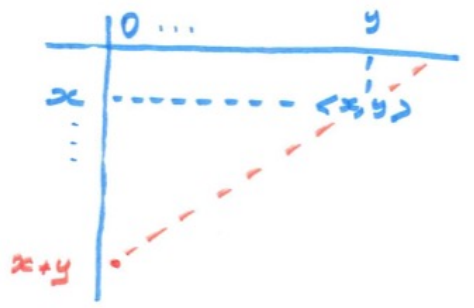 0 ... y
x
⋮
<x,y>
x+y